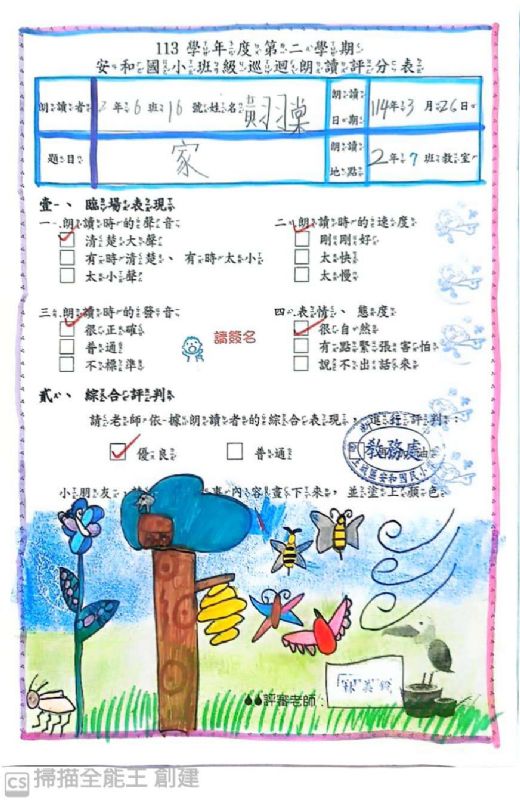 113 學年度第二學期
安和國小班級巡迴朗讀評分表
朗讀者 2年6班16號姓名 黃羽棠 朗讀日期 114年3月26日
題目 家 朗讀地點 2年7班教室
壹、臨場表現
一、朗讀時的聲音 二、朗讀時的速度
清楚大聲 剛剛好
有時清楚、有時太小 太快
太小聲 太慢
三、朗讀時的發音 四、表情、態度
很正確 很自然
普通 有點緊張害怕
不標準 說不出話來
請簽名
貳、綜合評判
請老師依據朗讀者的綜合表現,進行評判:
優良 普通 油
教務處
安和國民小
小朋友,請 事內容畫下來,並塗上顏色
評審老師:
CS 掃描全能王 創建